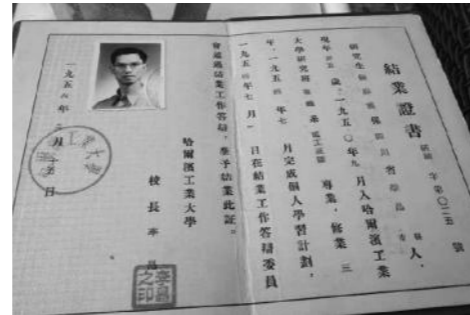 結業證書
字第〇二五號
研究生 四川省 人，
現年 歲，一九五〇年九月入哈爾濱工業
大學研究部 系 專業，修業三
年，一九五四年七月完成個人學習計劃，
一九五四年七月 日在結業工作答辯委員
會通過結業工作答辯，準予結業此証。
哈爾濱工業大學
校長李昌
李昌之印
一九五四年 月十五日
工業大學